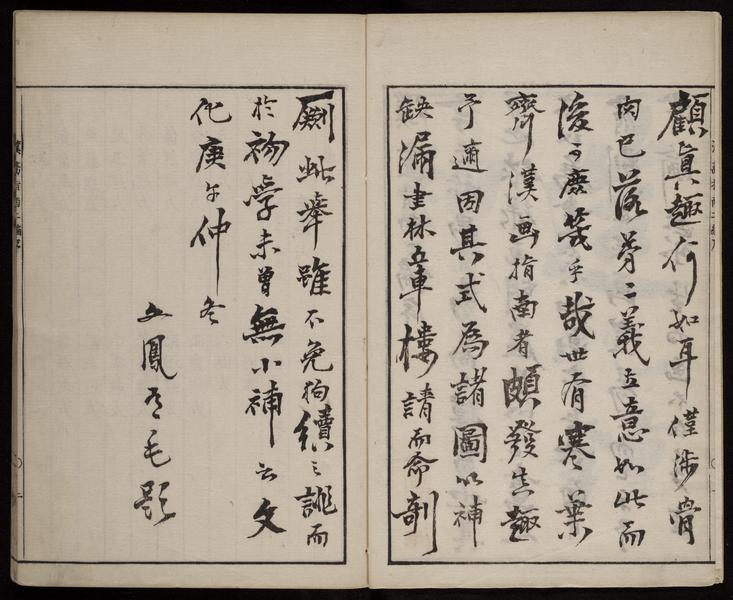 顧真趣何如耳僅渉骨
肉已落第二義立意如此而
後可塵等乎哉世有寒葉
齋漢画指南者頗發真趣
予適因其式為諸圖以補
缺漏書林五車樓請而命剞
劂此挙雖不免狗續之誹而
於初學未曽無小補云文
化庚午仲冬
文鳳馬毛題